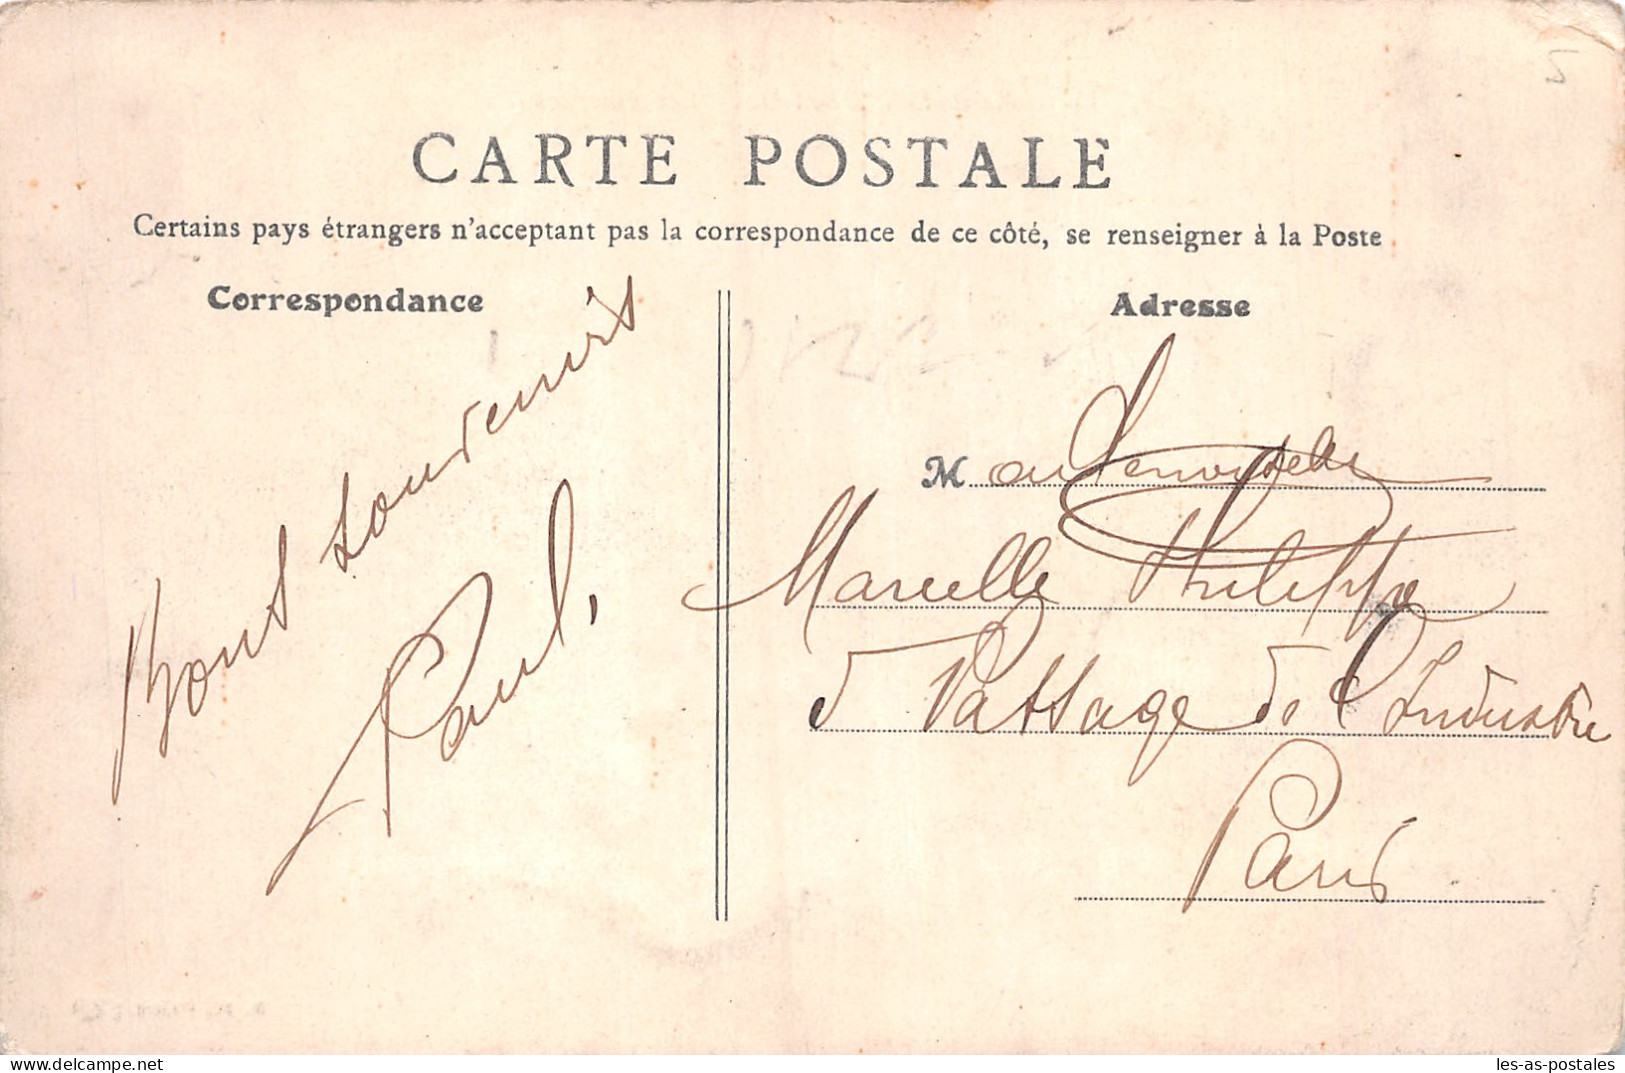 CARTE POSTALE
Certains pays étrangers n'acceptant pas la correspondance de ce côté, se renseigner à la Poste
Correspondance
Bons souvenirs
Paul.
Adresse
Mademoiselle
Marcelle Philippe
5 Passage de l'Industrie
Paris
delcampe.net
les-as-postales